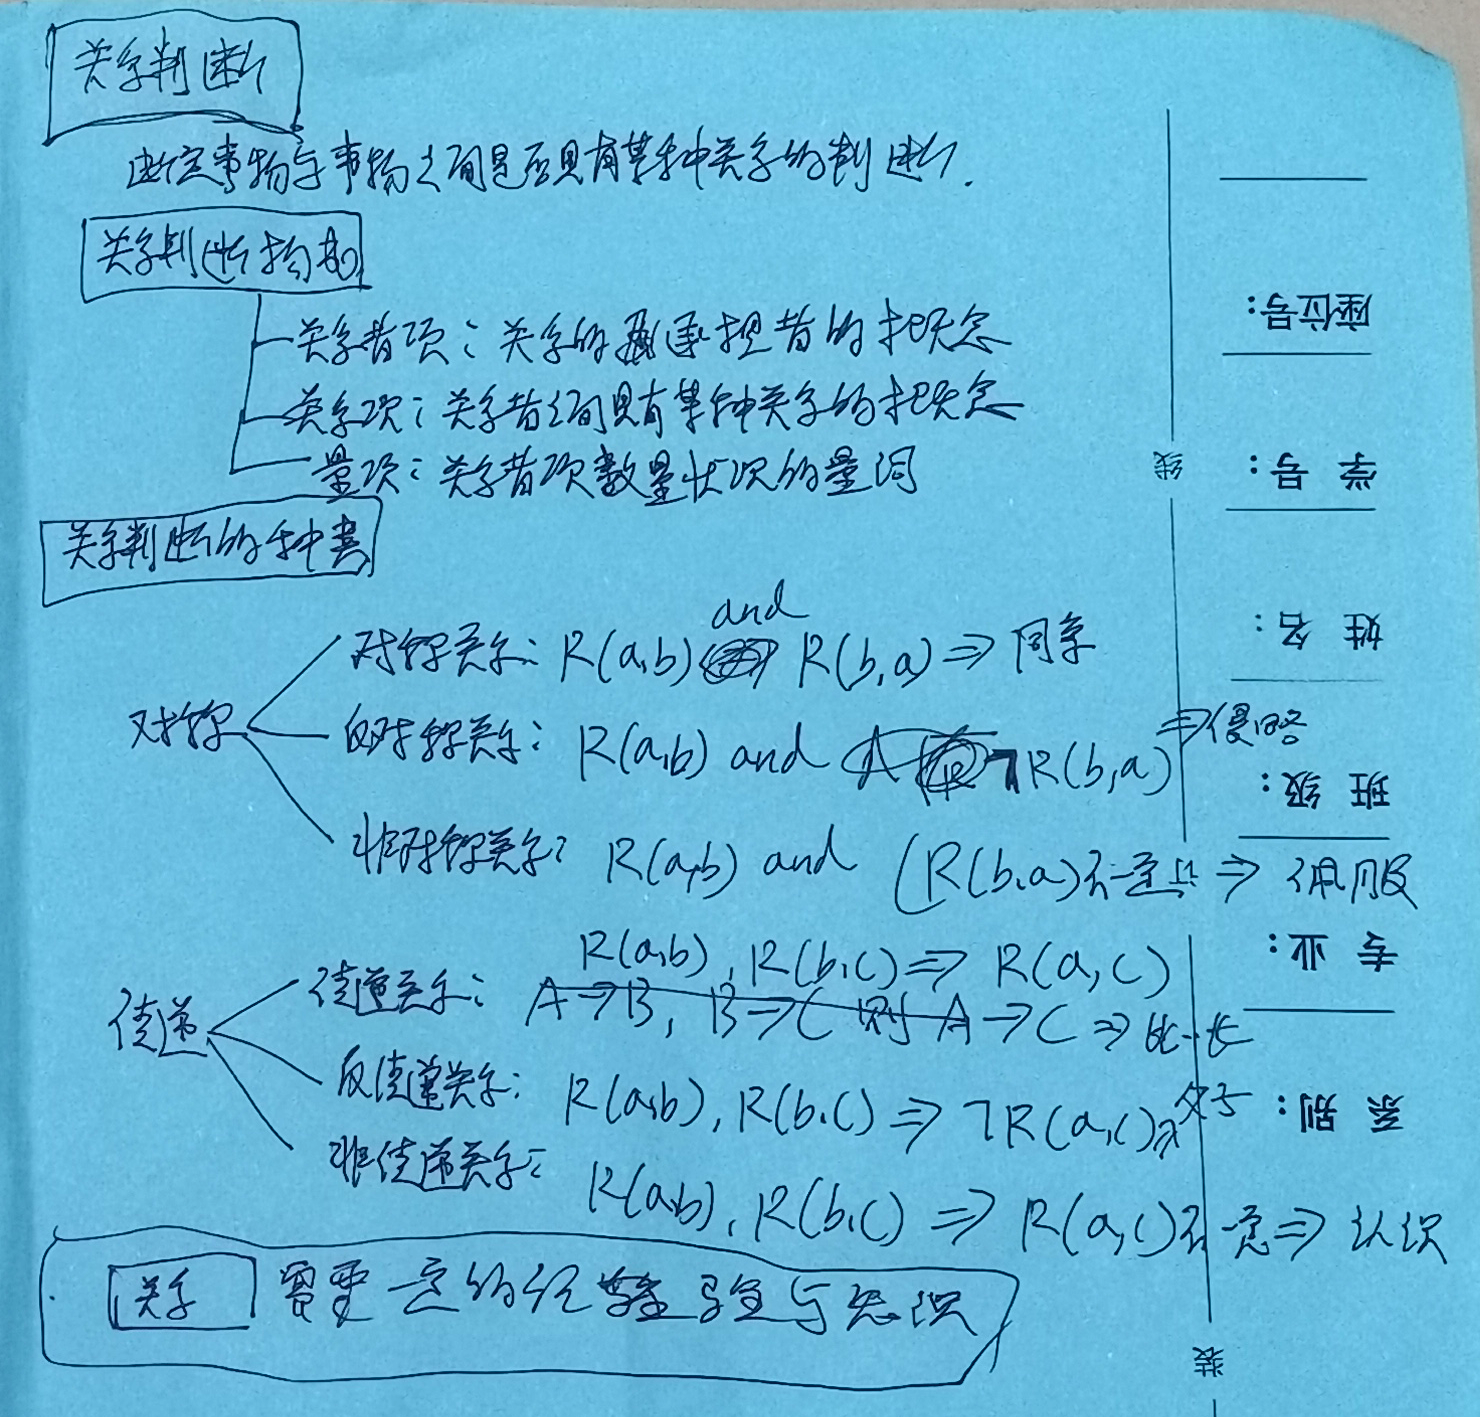 关系判断
断定事物与事物之间是否具有某种关系的判断.
关系判断构成
关系者项：关系的承担者的概念
关系项：关系者之间具有某种关系的概念
量项：关系者项数量状况的量词
关系判断的种类
对称
对称关系：R(a,b) and R(b,a) ⇒ 同学
反对称关系：R(a,b) and ¬R(b,a) ⇒ 侵略
非对称关系：R(a,b) and (R(b,a)不一定 ⇒ 佩服
传递
传递关系：R(a,b), R(b,c) ⇒ R(a,c)
A→B, B→C 则 A→C ⇒ 比..长
反传递关系：R(a,b), R(b,c) ⇒ ¬R(a,c) 父子
非传递关系：R(a,b), R(b,c) ⇒ R(a,c)不一定 ⇒ 认识
关系 需要一定的经验与知识
座位号：
学 号：
姓 名：
班 级：
专 业：
系 别：
线
装